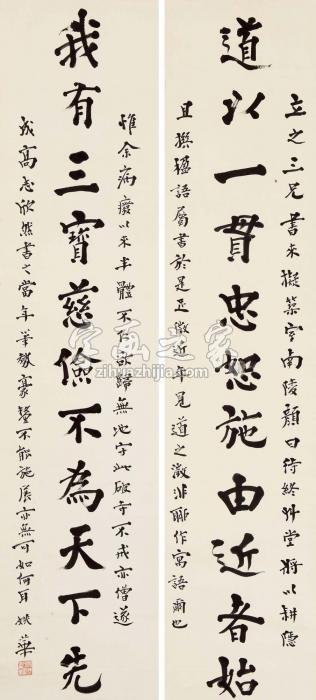 立之三兄書來擬築室南陵顏曰待終草堂將以耕隱
道以一貫忠恕施由近者始
且撰楹語屬書於是正徵近年見道之澈非聊作寓語爾也
惟余病廢以來半體不仁欲歸無地字此破寺不戒亦僧遂
我有三寶慈儉不為天下先
成高志欣然書之當年筆致豪 不能施展亦無可如何耳 姚華
字画之家
zihunzhijia.com